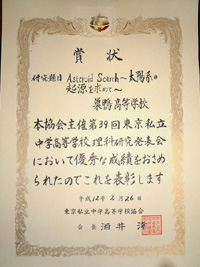 賞状
研究題目 Asteroid Search～太陽系の
起源を求めて～
巣鴨高等学校
本協会主催第39回東京私立
中学高等学校理科研究発表会
において優秀な成績をおさめ
られたのでこれを表彰します
平成12年2月26日
東京私立中学高等学校協会
会長 酒井